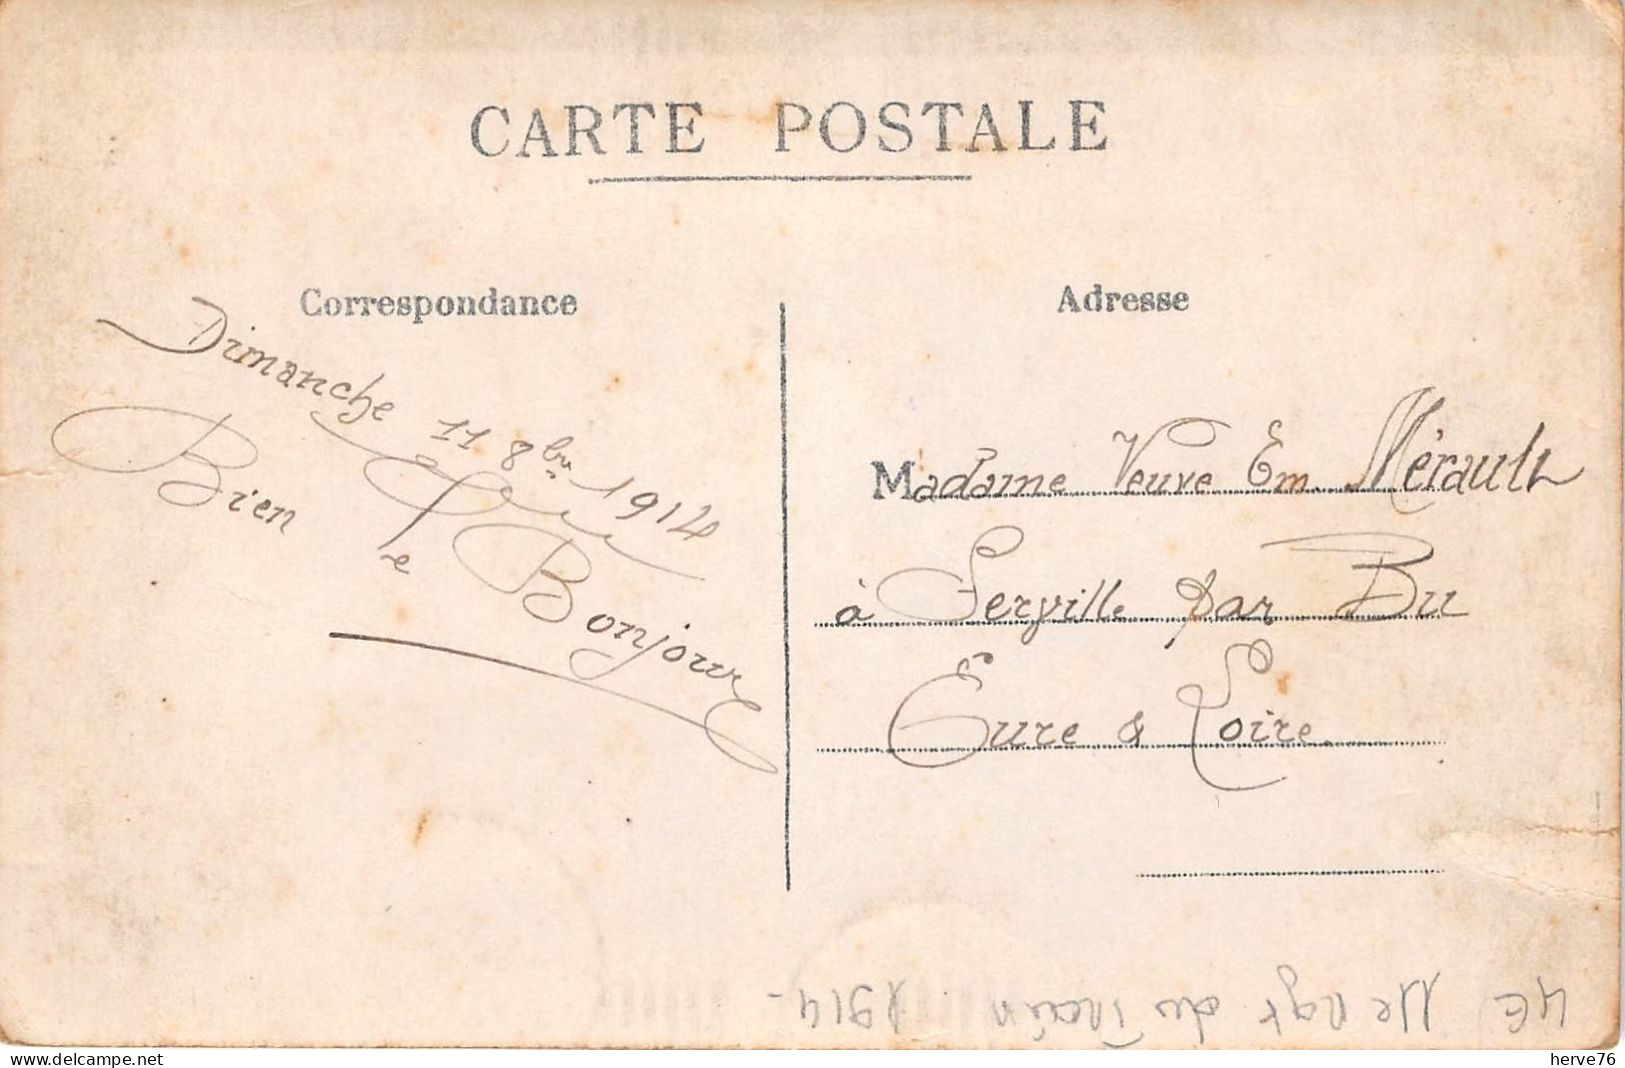 CARTE POSTALE
Correspondance
Adresse
Dimanche 11 8bre 1914
Bien le Bonjour
Madame Veuve Em. Mérault
à Serville par Bu
Eure & Loire
4E 11e Rgt du Train 1914-
delcampe.net
herve76